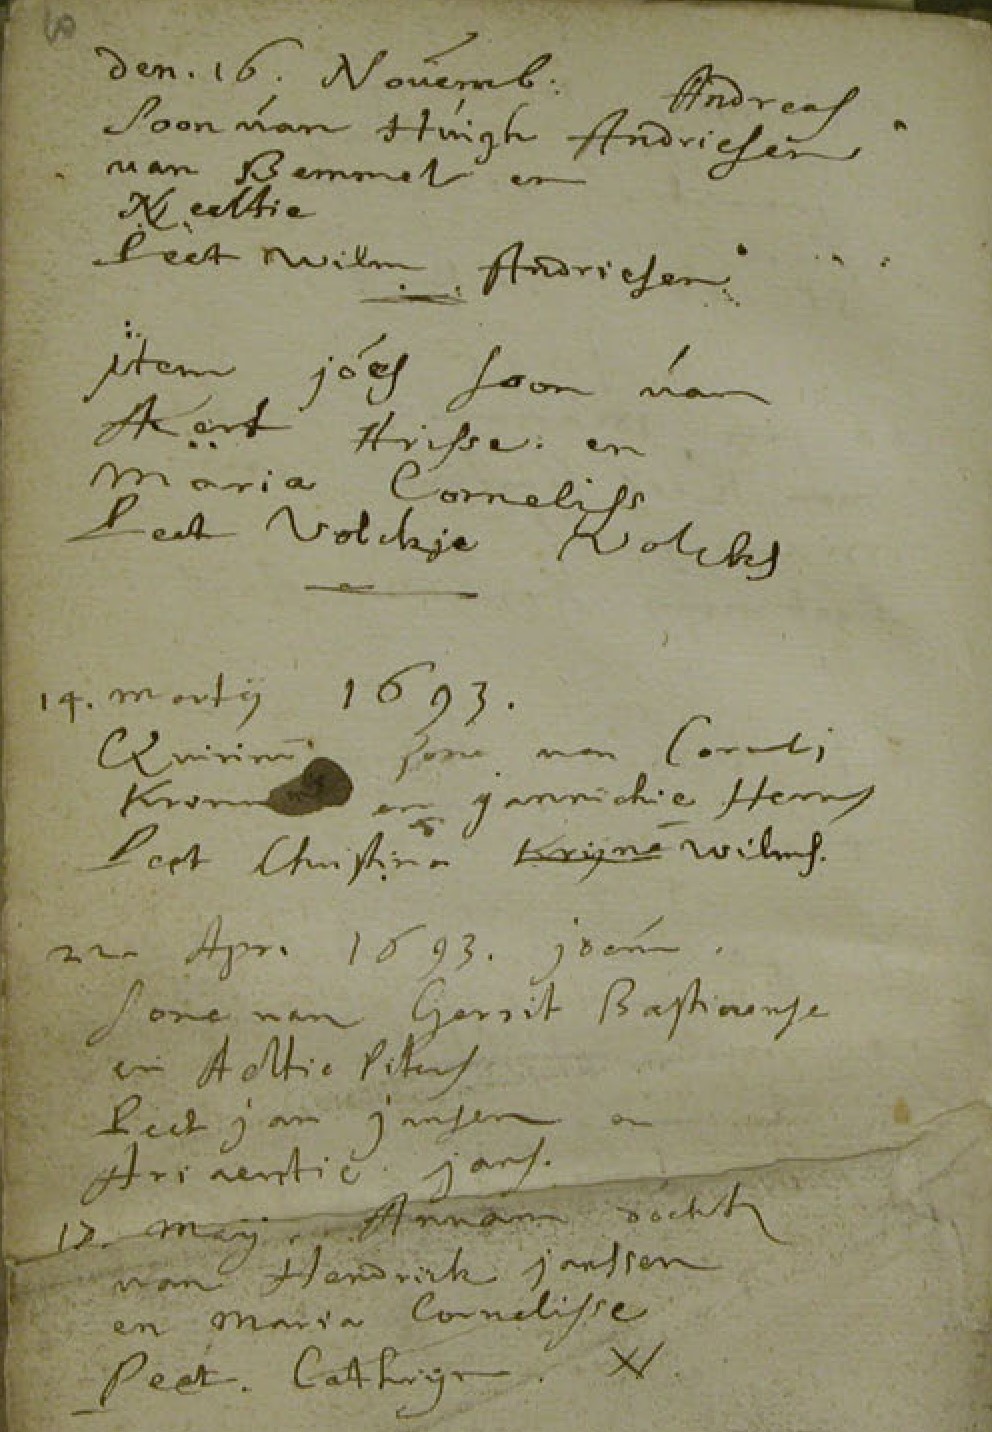 den. 16. Novemb: Andreas
Soon van Huigh Andriesen
van Bemmel en
Neeltie
Peet Wilm Andriesen
item joës soon van
Aert Hrisse. en
Maria Corneliss
Peet Volckje Volcks
14. martij 1693.
Quirinū sone van Corneli
Krom en jannichie Henrs
Peet Christina Krijne Wilms.
22 Apr. 1693. joēm.
sone van Gerrit Bastiaense
en Aeltie Piters
Peet jan jansen en
Ariaentie jans.
17. Maij. Annam docht
van Hendrick janssen
en Maria Cornelisse
Peet. Cathrijn. W.